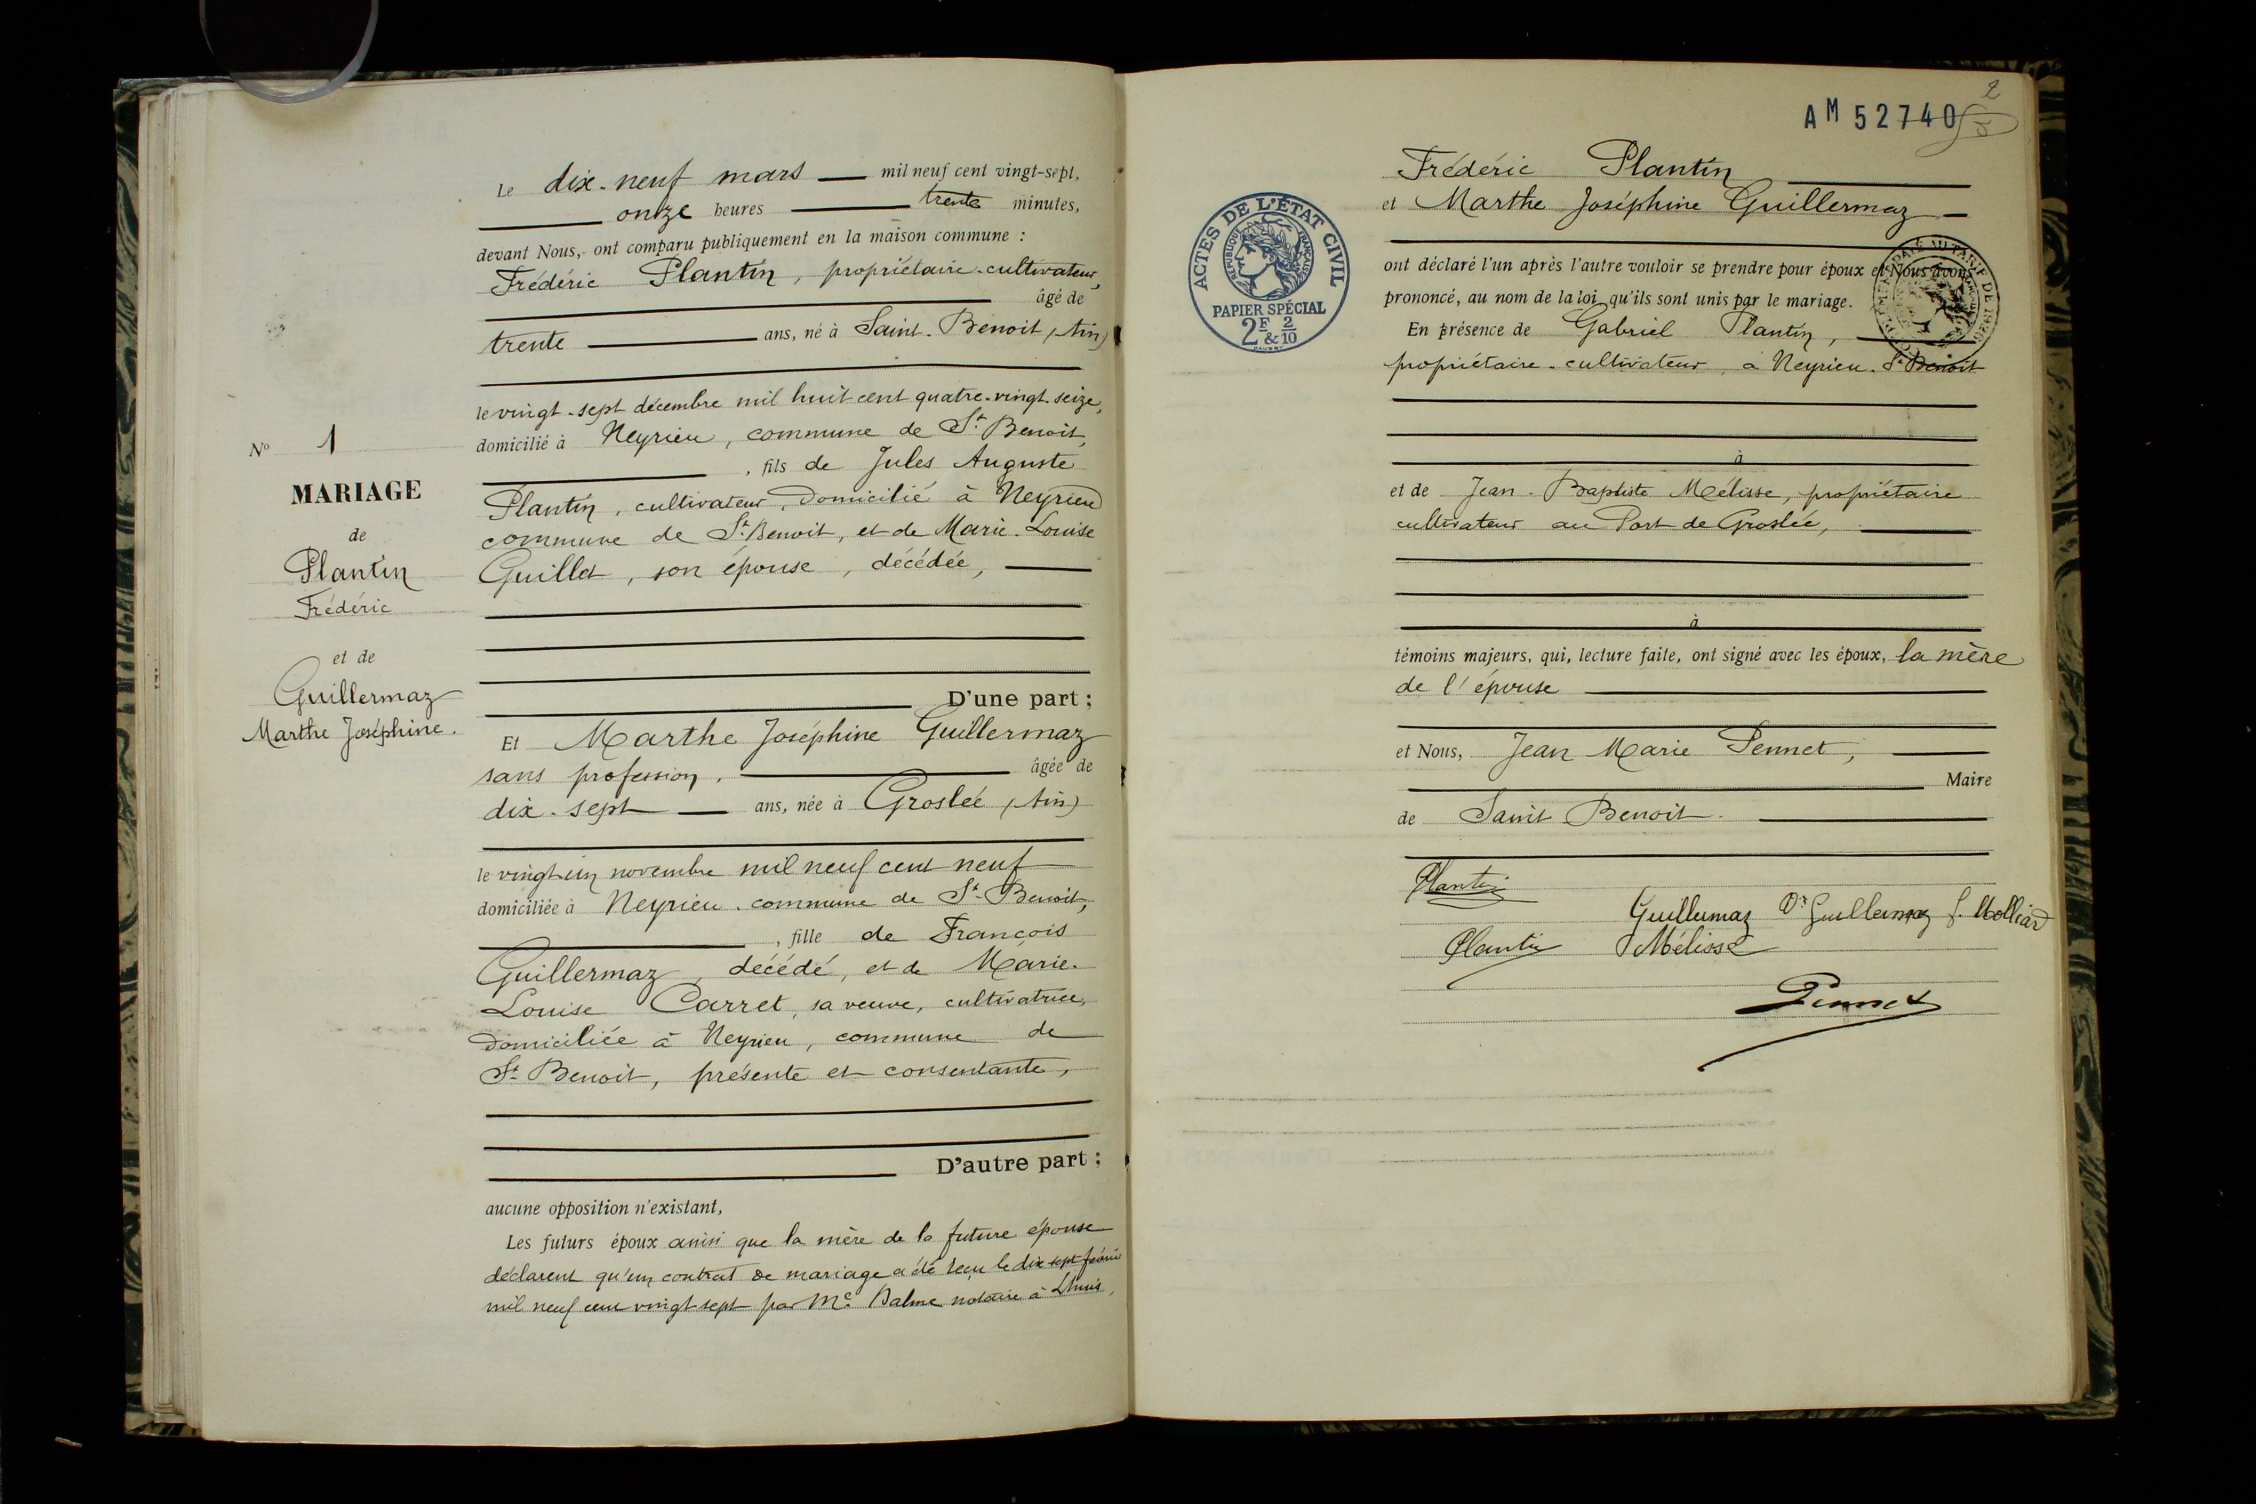 Le dix-neuf mars mil neuf cent vingt-sept,
onze heures trente minutes,
devant Nous, ont comparu publiquement en la maison commune :
Frédéric Plantin, propriétaire-cultivateur,
âgé de
trente ans, né à Saint-Benoit (Ain)
le vingt-sept décembre mil huit cent quatre-vingt-seize,
domicilié à Neyrieu, commune de St Benoit,
, fils de Jules Auguste
Plantin, cultivateur, domicilié à Neyrieu
commune de St Benoit, et de Marie-Louise
Guillot, son épouse, décédée,
D'une part ;
Et Marthe Joséphine Guillermaz
sans profession, âgée de
dix-sept ans, née à Groslée (Ain)
le vingt-un novembre mil neuf cent neuf
domiciliée à Neyrieu, commune de St Benoit,
, fille de François
Guillermaz, décédé, et de Marie-
Louise Carret, sa veuve, cultivatrice,
domiciliée à Neyrieu, commune de
St Benoit, présente et consentante,
D'autre part ;
aucune opposition n'existant,
Les futurs époux ainsi que la mère de la future épouse
déclarent qu'un contrat de mariage a été reçu le dix sept février
mil neuf cent vingt-sept par Me Balme notaire à Lhuis,
No 1
MARIAGE
de
Plantin
Frédéric
et de
Guillermaz
Marthe Joséphine.
AM 52740
2
Frédéric Plantin
et Marthe Joséphine Guillermaz
ont déclaré l'un après l'autre vouloir se prendre pour époux et Nous avons
prononcé, au nom de la loi, qu'ils sont unis par le mariage.
En présence de Gabriel Plantin,
propriétaire-cultivateur à Neyrieu. St Benoit
à
et de Jean-Baptiste Mélisse, propriétaire
cultivateur au Port de Groslée,
à
témoins majeurs, qui, lecture faite, ont signé avec les époux, la mère
de l'épouse
et Nous, Jean Marie Pennet,
Maire
de Saint Benoit.
Plantin
Guillermaz Vve Guillermaz f. Molliard
Plantin Mélisse
Pennet
ACTES DE L'ÉTAT CIVIL
RÉPUBLIQUE FRANÇAISE
PAPIER SPÉCIAL
2F & 2/10